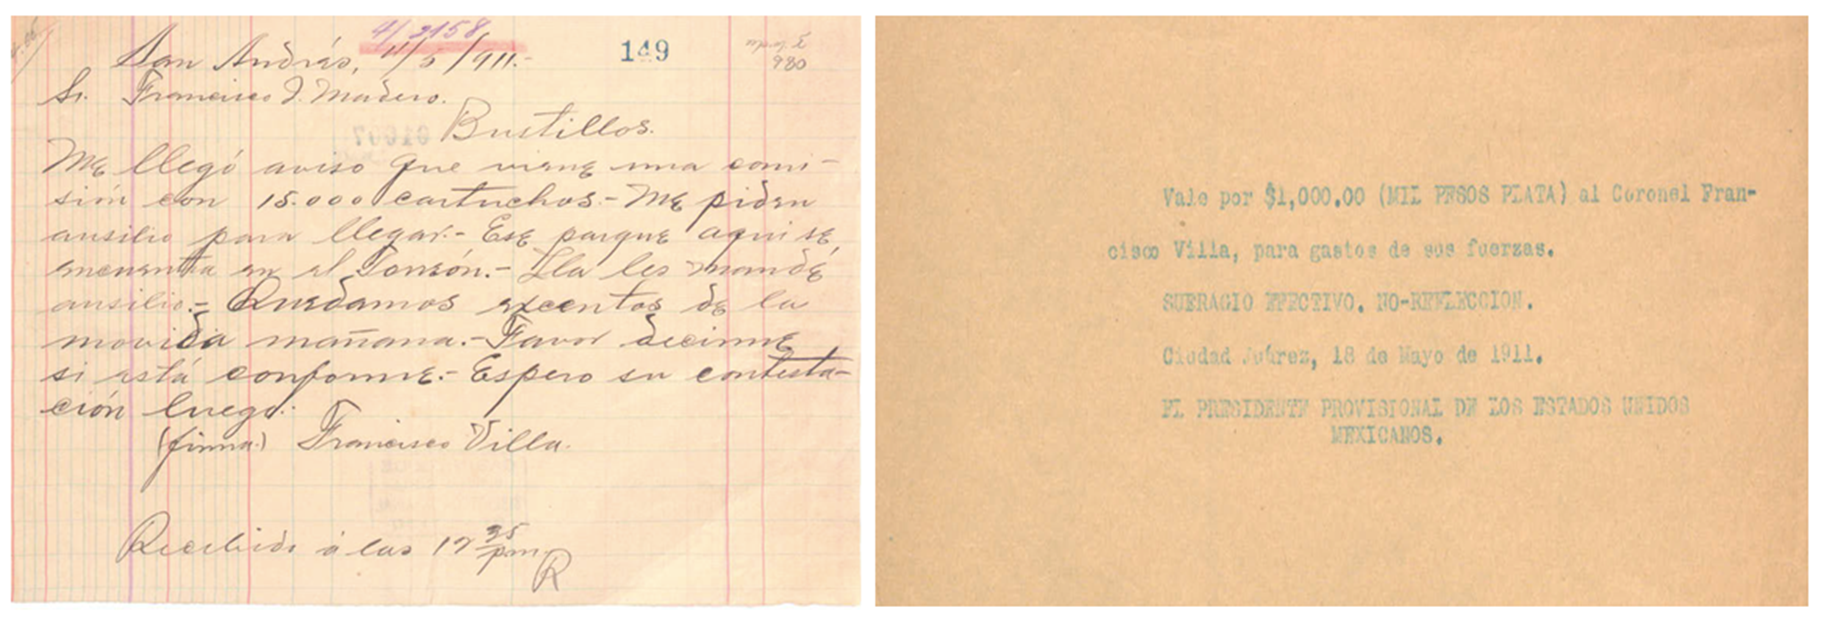 4/3158
149
San Andrés, 1/5/911.-
980
Sr. Francisco I. Madero.
Bustillos.
Me llegó aviso que viene una comi-
sión con 15.000 cartuchos.- Me piden
ausilio para llegar.- Ese parque aqui se
encuentra en el Sonsón.- Lla les mandé
ausilio.- Quedamos excentos de la
movida mañana.- Favor decirme
si está conforme.- Espero su contesta-
ción luego.
(firma) Francisco Villa.
Recibido á las 12 35 pm.
R
Vale por $1,000.00 (MIL PESOS PLATA) al Coronel Fran-
cisco Villa, para gastos de sus fuerzas.
SUFRAGIO EFECTIVO. NO-REELECCION.
Ciudad Juárez, 18 de Mayo de 1911.
EL PRESIDENTE PROVISIONAL DE LOS ESTADOS UNIDOS
MEXICANOS.